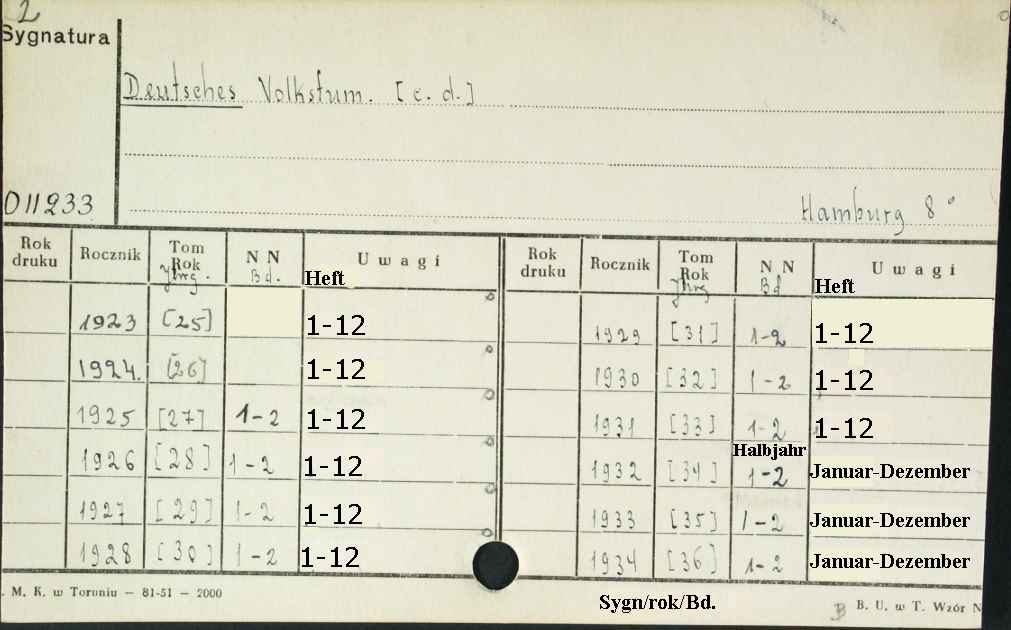 2
Sygnatura
Deutsches Volkstum. [c. d.]
011233
Hamburg 8°
Rok druku Rocznik Tom Rok Jhrg. N N Bd. Uwagi Heft Rok druku Rocznik Tom Rok Jhrg N N Bd Uwagi Heft
1923 [25] 1-12 1929 [31] 1-2 1-12
1924. [26] 1-12 1930 [32] 1-2 1-12
1925 [27] 1-2 1-12 1931 [33] 1-2 1-12
Halbjahr
1926 [28] 1-2 1-12 1932 [34] 1-2 Januar-Dezember
1927 [29] 1-2 1-12 1933 [35] 1-2 Januar-Dezember
1928 [30] 1-2 1-12 1934 [36] 1-2 Januar-Dezember
. M. K. w Toruniu — 81-51 — 2000
Sygn/rok/Bd.
B B. U. w T. Wzór N